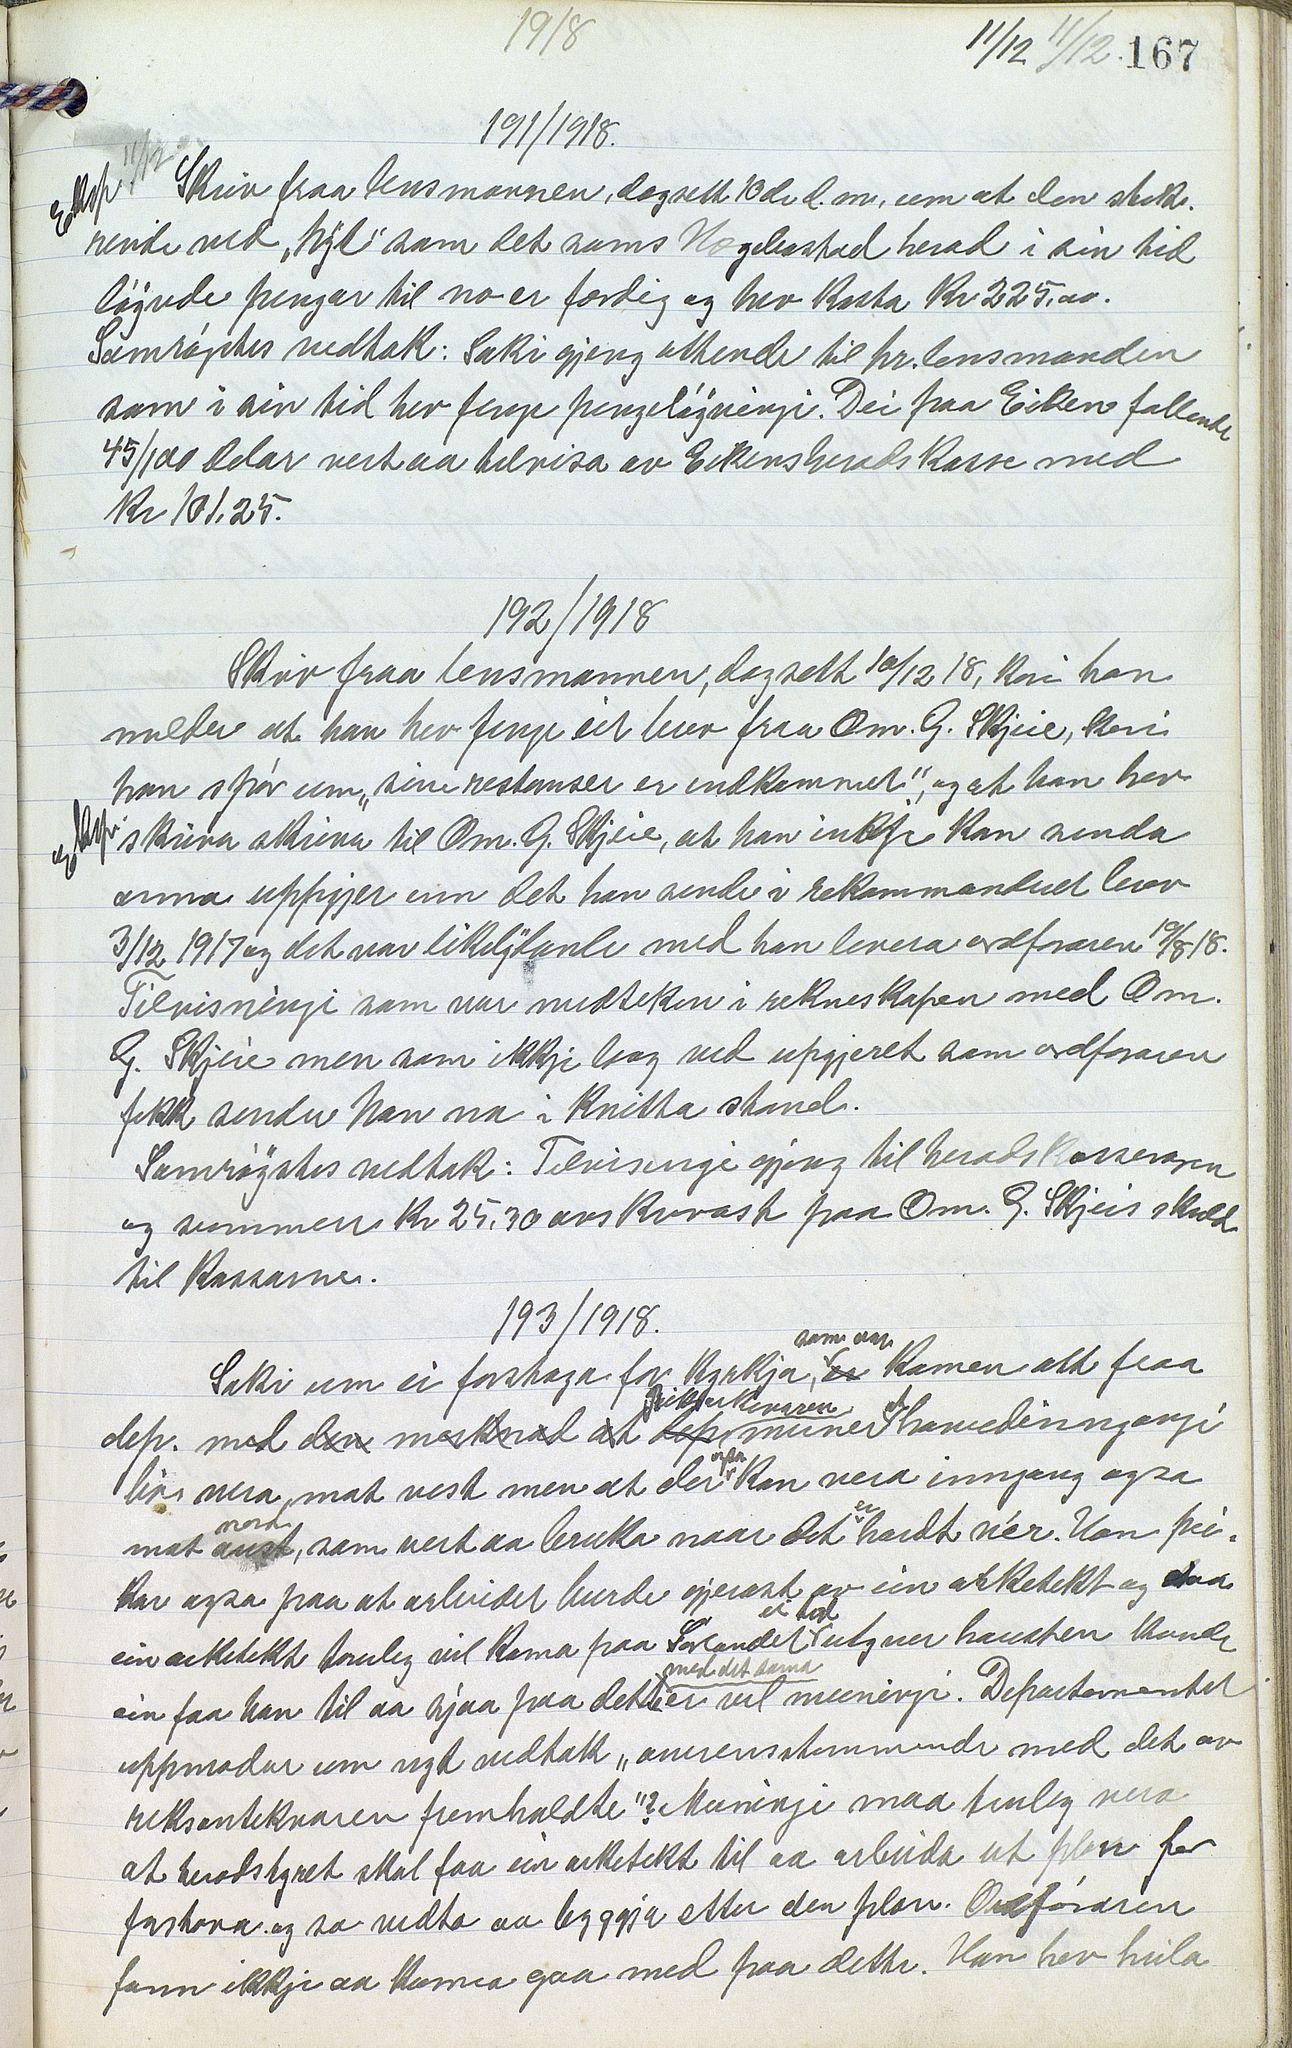 1918
11/12 11/12. 167
191/1918.
Eksp. 11/12
Skriv fraa lensmannen, dagsett 10de d. m., um at den
rende ved „Kyl" som det sams Hægebostad herad i sin tid
løyvde pengar til no er ferdig og hev kosta Kr 225,00.
Samrøystes vedtak: Saki gjeng attende til hr. lensmanden
som i sin tid hev fenge pengeløyvingi. Dei paa Eiken fallende
45/100 delar vert aa tilvisa av Eikens heradskasse med
Kr 101,25.
192/1918
Skriv fraa lensmannen, dagsett 10/12 18, kori han
melder at han hev fenge eit brev fraa Om. G. Skjeie, kori
han spør um „sine restanser er indkommet", og at han hev
Eksp.
skriva skriva til Om. G. Skjeie, at han inkje kan senda
anna uppgjer enn det han sende i rekommanduet brev
3/12 1917 og det var likelydande med han levera ordføraren 19/8 18.
Tilvisningi som var medteken i rekneskapen med Om.
G. Skjeie men som ikkje laag ved upgjeret som ordføraren
fekk sender han no i kvitta stand.
Samrøystes vedtak: Tilvisingi gjeng til heradskasseraren
og summen Kr 25,30 avskrivast paa Om. G. Skjeies skuld
til kassarne.
193/1918.
som var
Saki um ei forstoga for kyrkja, er komen att fraa
riksantikvaren at
dep. med den merknad at dep. meiner hovedinngangi
ogsa
bør vera mot vest men at der kan vera inngang ogsa
nord er
mot aust, som vert aa bruka naar det hardt vér. Han pei-
kar ogsa paa at arbeidet burde gjerast av ein arketekt og daa
ei tid
ein arketekt truleg vil koma paa Sørlandet utyver hausten kunde
med det sama
ein faa han til aa sjaa paa dette er vel meiningi. Departementet
uppmodar um nyt vedtak „overensstemmende med det av
riksantekvaren fremholdte"? Meiningi maa truleg vera
at heradstyret skal faa ein arketekt til aa arbeida ut plan for
forstova og so vedta aa byggja etter den plan. Ordføraren
fann ikkje aa kunna gaa med paa dette. Han hev